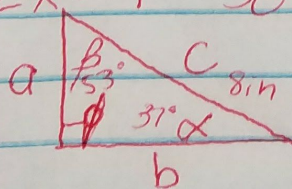 β
a 53° C 8in
37° α
b